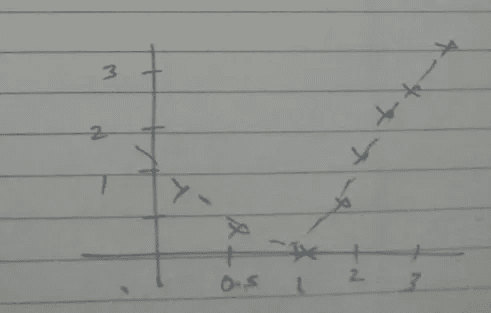 3
2
1
0.5 1 2 3